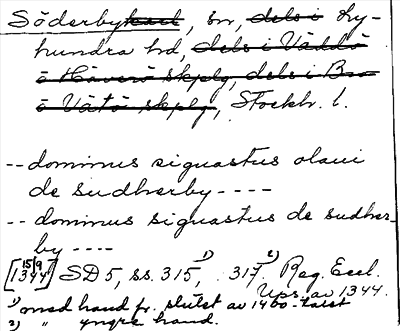 Söderbykarl, sn, dels i Ly-
hundra hd, dels i Väddö
o Häverö skplg, dels i Bro
o Vätö skplg, Stockh. l.
-- dominus siguastus olaui
de sudherby ----
-- dominus siguastus de sudher-
by ----
[15/9 1344] SD 5, ss. 315,¹⁾ 317.²⁾ Reg. Eccl.
Ups. av 1344.
1) med hand fr. slutet av 1400-talet
2) " yngre hand.